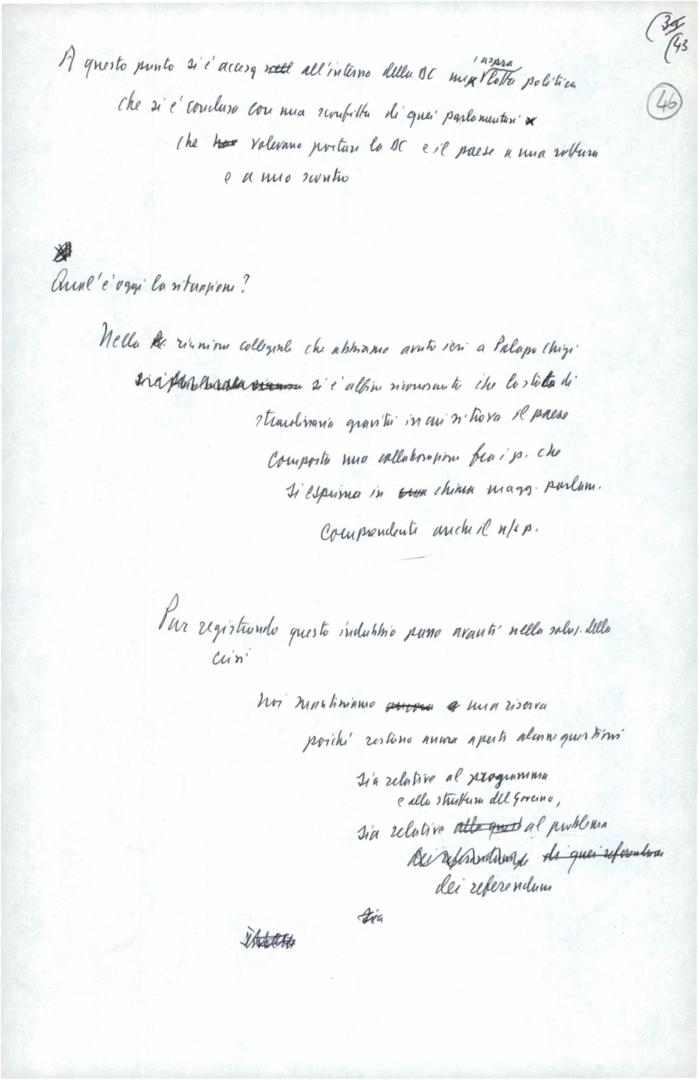 (35
(43
46
A questo punto si è accesa nell all'interno della DC una aspra lotta politica
che si è conclusa con una sconfitta di quei parlamentari
che volevano portare la DC e il paese a una rottura
e a uno scontro
Qual'è oggi la situazione?
Nella riunione collegiale che abbiamo avuto ieri a Palazzo Chigi
si è alfine riconosciuto che lo stato di
straordinaria gravità in cui si trova il paese
comporta una collaborazione fra i p. che
si esprima in chiara magg. parlam.
comprendente anche il n/s p.
Pur registrando questo indubbio passo avanti nella soluz. della
crisi
noi manteniamo ancora una riserva
poiché restano ancora aperte alcune questioni
sia relative al programma
e alla struttura del Governo,
sia relative al problema
dei referendum di quei referendum
dei referendum
sia